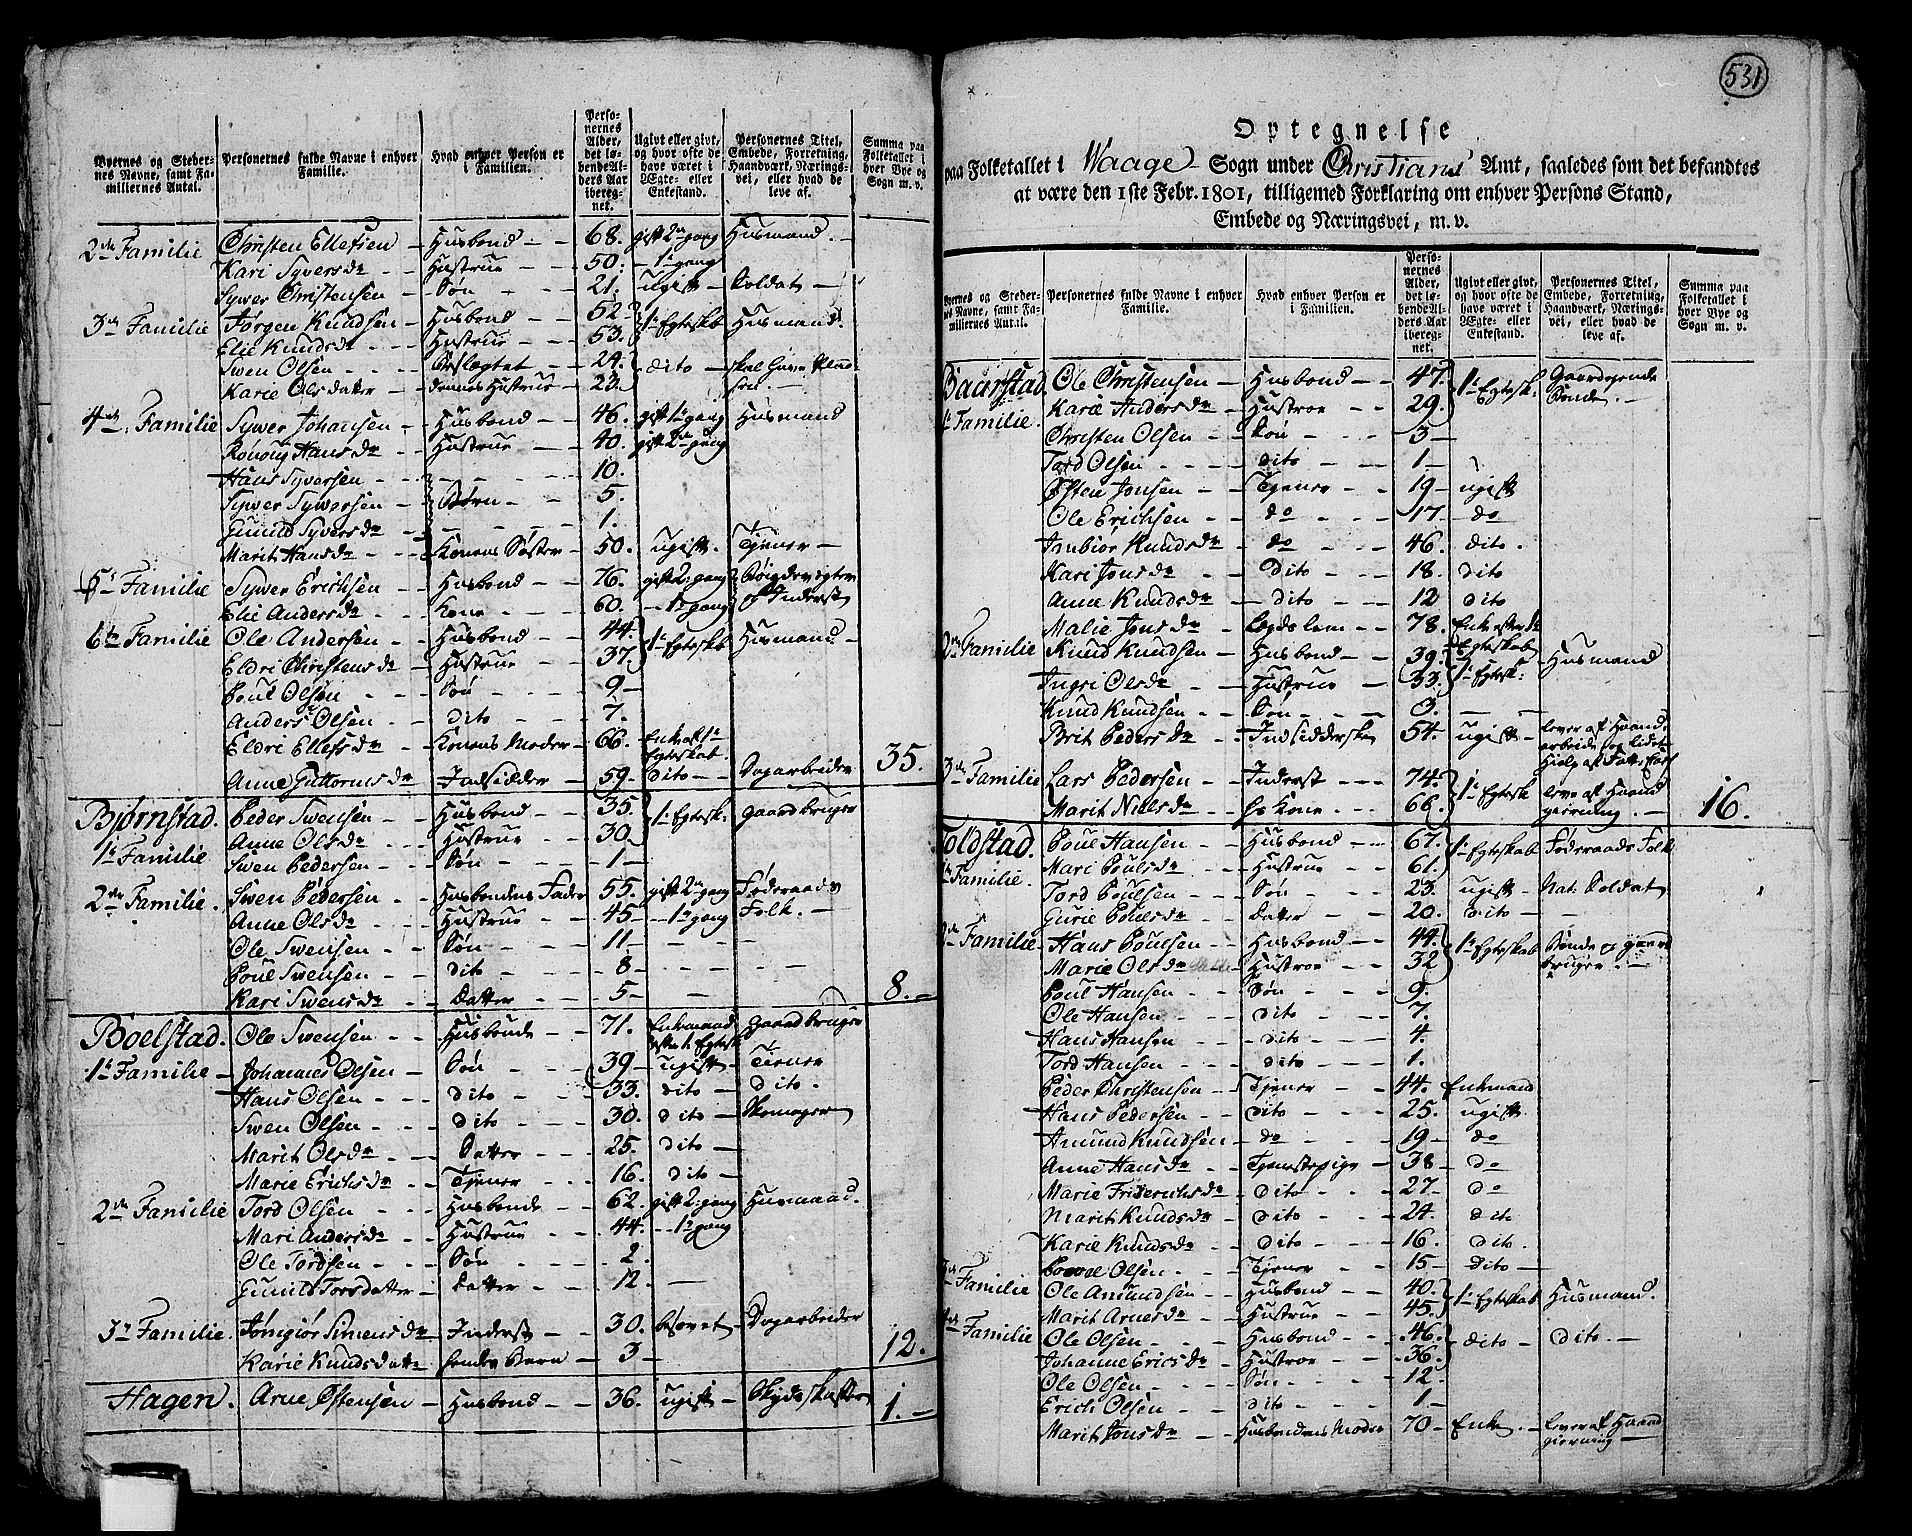 Byernes og Stedernes Navne, samt Familiernes Antal. | Personernes fulde Navne i enhver Familie. | Hvad enhver Person er i Familien. | Personernes Alder, det løbende Alders Aar iberegnet. | Ugivt eller givt, og hvor ofte de have været i Ægte- eller Enkestand. | Personernes Titel, Embede, Forretning, Haandværk, Næringsvei, eller hvad de leve af. | Summa paa Folketallet i hver Bye og Sogn m. v.
2de Familie Christen Ellefsen Husbond 68. gift 2n gang Husmand
Kari Syversdr Hustrue 50. 1te gang
Sywer Christensen Søn 21. ugift Soldat
3de Familie Jørgen Knudsen Husbond 52 1te Egteskb Husmand.
Elie Knudsdr Hustrue 53.
Swen Olsen Beslægtet 24. dito skal have Pladsen.
Karie Olsdatter dennes Hustrue 23.
4de Familie Sywer Johansen Husbond 46. gift 1te gang Husmand
Rønnøy Hansdr Hustrue 40. gift 2n gang
Hans Syversen 10.
Sywer Sywersen Børn 5.
Gunild Syversdr 1.
Marit Hansdr Konens Søster 50. ugift. Tjener
5te Familie Sywer Erichsen Husbond 76. gift 2n gang
Elie Andersdr Kone 60. 1te gang Inderst
6te Familie Ole Andersen Husbond 44. 1te Egteskb Husmand
Eldri Christensdr Hustrue 37.
Poul Olsen Søn 9
Anders Olsen dito 7.
Eldri Ellefsdr Konens Moder 66. Enke aft 1te Egteskab.
Anne Guttormsdr Indsidder 59. dito Dagarbeider 35.
Bjørnstad. Peder Swensen Husbond 35. 1te Egtesk: gaardbruger
1te Familie Anne Olsdr Hustrue 30.
Swen Pedersen Søn 1
2de Familie. Swen Pedersen Husbondens Fader 55. gift 2n gang Føderaads
Anne Olsdr Hustrue 45 1te gang Folk.
Ole Swensen Søn 11
Poul Swensen dito 8
Kari Swensdr Datter 5 8.
Boelstad. Ole Swensen Husbonde 71. Enkemand efter 1. Egtesk gaardbruger
1te Familie Johannes Olsen Søn 39 ugift Tiener
Hans Olsen dito 33. dito dito.
Swen Olsen dito 30. dito Skomager
Marit Olsdr Datter 25. dito
Marie Erichsdr Tjener 16. dito
2de Familie Tord Olsen Husbonde 62. gift 2. gang Husmand.
Mari Andersdr Hustrue 44. 1te gang
Ole Tordsen Søn 2.
Gunild Torsdatter Datter 12.
3de Familie. Simensdr Inderst 30. besovet Dagarbeider
Karie Knudsdatter hendes Barn 3 12.
Hagen. Arne Østensen Husbond 36. ugift 1.
531
Optegnelse
paa Folketallet i Waage Sogn under Christians Amt, saaledes som det befandtes
at være den 1ste Febr. 1801, tilligemed Forklaring om enhver Persons Stand,
Embede og Næringsvei, m. v.
Byernes og Stedernes Navne, samt Familiernes Antal. | Personernes fulde Navne i enhver Familie. | Hvad enhver Person er i Familien. | Personernes Alder, det løbende Alders Aar iberegnet. | Ugivt eller givt, og hvor ofte de have været i Ægte- eller Enkestand. | Personernes Titel, Embede, Forretning, Haandværk, Næringsvei, eller hvad de leve af. | Summa paa Folketallet i hver Bye og Sogn m. v.
Baarstad. Ole Christensen Husbond 47. 1te Egtesk: Gaardegende
1te Familie. Karie Andersdr Hustroe 29. Bonde.
Christen Olsen Søn 3
Tord Olsen dito 1
Østen Jonsen Tjener 19 ugift
Ole Erichsen do 17. do
Imbiør Knudsdr do 46. dito.
Kari Jonsdr dito 18. dito
Anne Knudsdr dito 12 dito
Malie Jonsdr Legdslem 78. Enke
2de Familie Knud Knudsen Husbond 39. 1te Egtesk: Husmand
Ingri Olsdr Hustrue 33.
Knud Knudsen Søn 3.
Brit Pedersdr Indsidderske 54. ugift lever af Haandarbeide og lidet Hielp af
3de Familie Lars Pedersen Inderst 74. 1te Egtesk leve af Haand
Marit Nielsdr hs Kone 66. gierning. 16.
Toldstad. Poul Hansen Husbond 67. 1te Egteskab Føderaads Folk
1te Familie. Mari Poulsdr Hustrue 61.
Tord Poulsen Søn 23. ugift Nat. Soldat
Gurie Poulsdr Datter 20. dito
2de Familie Hans Poulsen Husbond 44. 1te Egteskab Bonde og gaard
Marie Olsdr Hustroe 32 bruger.
Poul Hansen Søn 9.
Ole Hansen dito 7.
Hans Hansen dito 4.
Tord Hansen dito 1.
Peder Christensen Tjener 44. Enkemand
Hans Pedersen dito 25. ugift
Amund Knudsen do 19 do
Anne Hansdr Tjenestepige 38 do
Marie Friderichsdr dito 27. do
Marit Knudsdr dito 24. dito
Karie Knudsdr dito 16. dito.
Olsen Tjener 15 dito
3de Familie Ole Amundsen Husbond 40. 1te Egteskab Husmand.
Marit Arnesdr Hustrue 45.
4de Familie Ole Olsen Husbond 46. dito dito.
Johanne Ericsdr Hustroe 36.
Ole Olsen Søn 12.
Erich Olsen dito 1
Marit Jonsdr Husbondens Moder 70 Enke. Lever af Haand
gierning